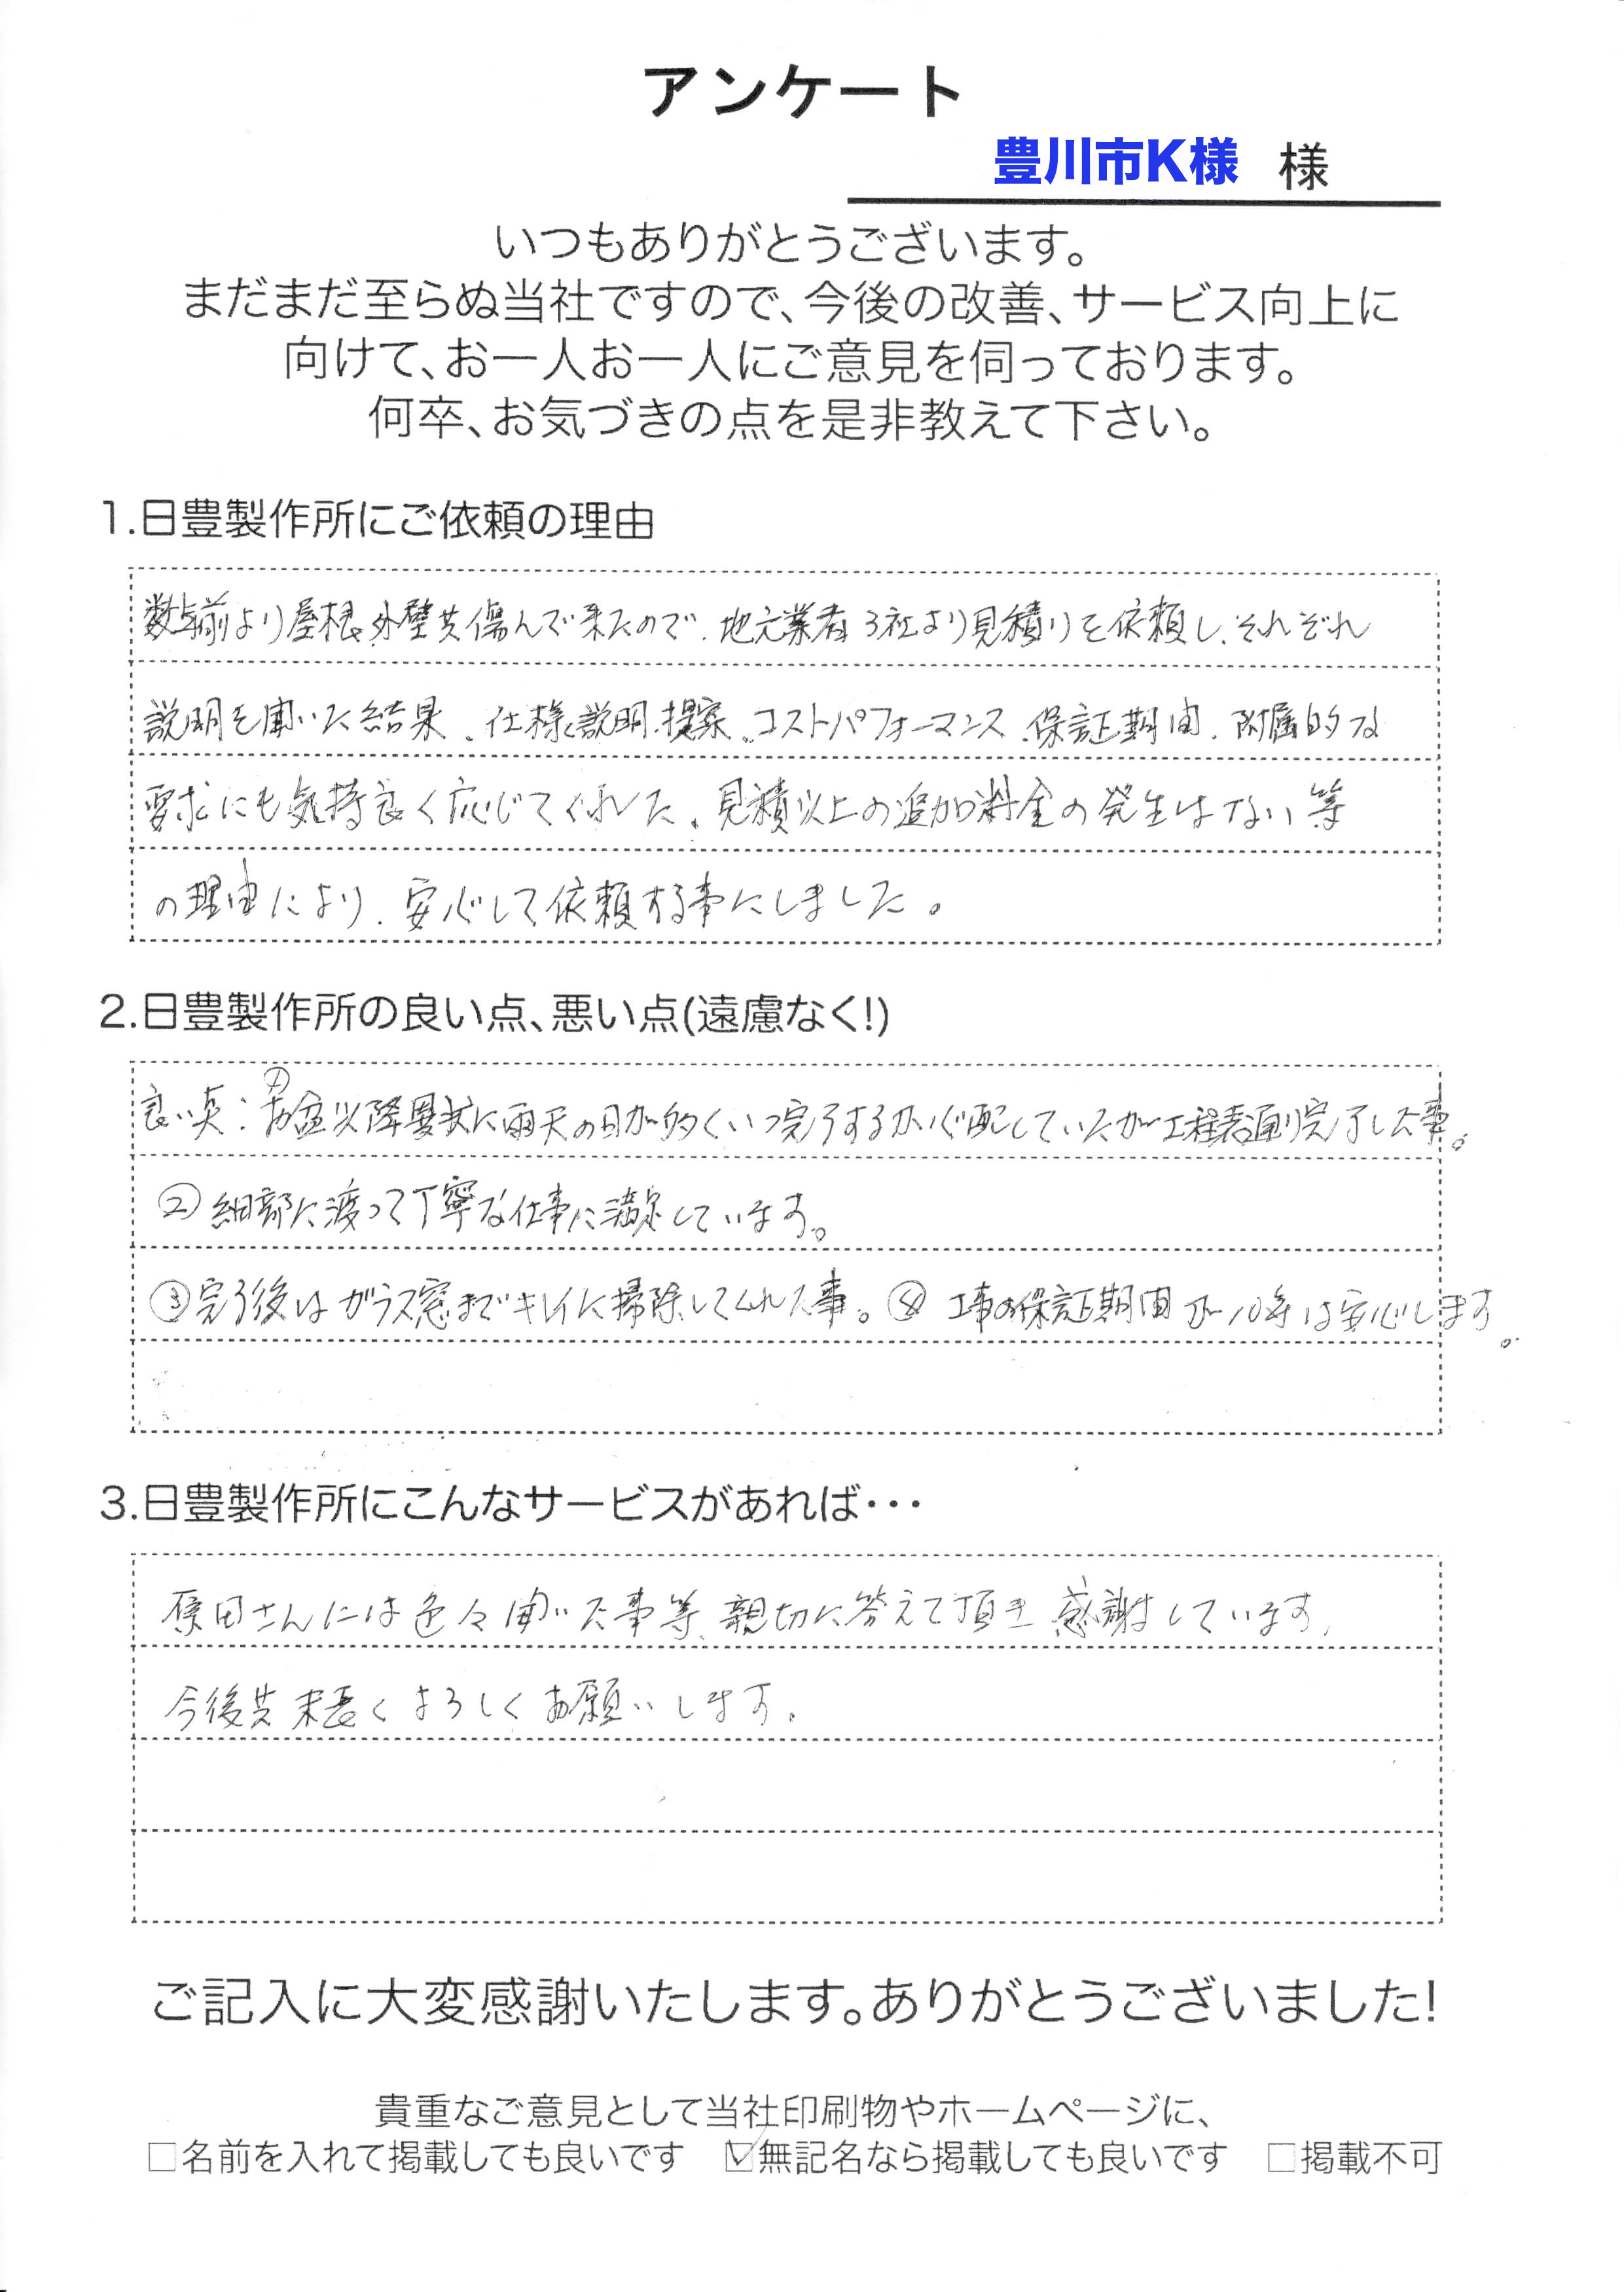 アンケート
豊川市K様 様
いつもありがとうございます。
まだまだ至らぬ当社ですので、今後の改善、サービス向上に
向けて、お一人お一人にご意見を伺っております。
何卒、お気づきの点を是非教えて下さい。
1.日豊製作所にご依頼の理由
数年前より屋根、外壁共傷んで来たので、地元業者3社より見積りを依頼し、それぞれ
説明を聞いた結果、仕様説明、提案、コストパフォーマンス、保証期間、附属的な
要求にも気持良く応じてくれた、見積以上の追加料金の発生はない等
の理由により、安心して依頼する事にしました。
2.日豊製作所の良い点、悪い点(遠慮なく!)
良い点:①お盆以降異状に雨天の日が多くいつ完了するか心配していたが工程表通り完了した事。
②細部に渡って丁寧な仕事に満足しています。
③完了後はガラス窓までキレイに掃除してくれた事。④ 工事の保証期間が10年は安心します。
3.日豊製作所にこんなサービスがあれば・・・
原田さんには色々聞いた事等、親切に答えて頂き感謝しています、
今後共末長くよろしくお願いします。
ご記入に大変感謝いたします。ありがとうございました!
貴重なご意見として当社印刷物やホームページに、
□名前を入れて掲載しても良いです ☑無記名なら掲載しても良いです □掲載不可